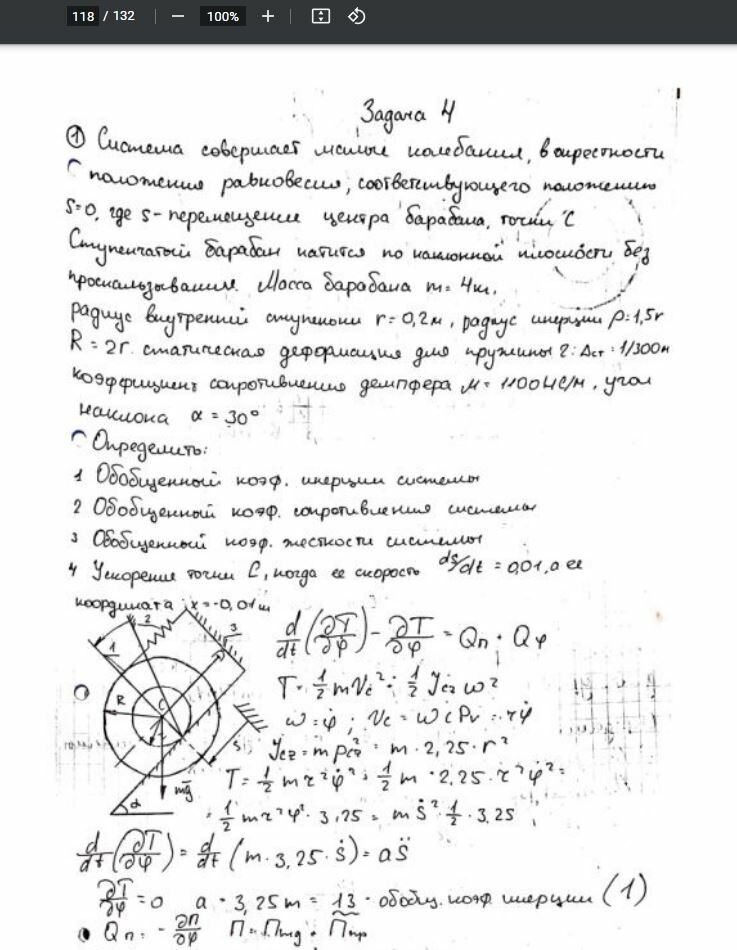 118 / 132
100%
Задача 4
① Система совершает малые колебания, в окрестности
положения равновесия, соответствующего положению
S=0, где s - перемещение центра барабана, точки C
Ступенчатый барабан катится по наклонной плоскости без
проскальзывания. Масса барабана m = 4кг,
радиус внутренней ступеньки r = 0,2м, радиус инерции ρ = 1,5r
R = 2r. статическая деформация для пружины 2: Δст = 1/300м
коэффициент сопротивления демпфера μ = 1100Нс/м, угол
наклона α = 30°
Определить:
1 Обобщенный коэф. инерции системы
2 Обобщенный коэф. сопротивления системы
3 Обобщенный коэф. жесткости системы
4 Ускорение точки C, когда ее скорость ds/dt = 0,01, а ее
координата x = -0,01м
1
2
3
R
C
S
mg
α
d/dt (∂T/∂φ̇) - ∂T/∂φ = Qп + Qφ
T = 1/2 mVc² + 1/2 Jcz ω²
ω = φ̇ ; Vc = ωCPv = rφ̇
Jcz = mρcz² = m · 2,25 · r²
T = 1/2 mr²φ̇² + 1/2 m · 2,25 · r²φ̇² =
= 1/2 mr²φ̇² · 3,25 = mṠ² · 1/2 · 3,25
d/dt (∂T/∂φ̇) = d/dt (m · 3,25 · Ṡ) = aS̈
∂T/∂φ = 0 a = 3,25m = 13 - обобщ. коэф. инерции (1)
Qп = - ∂П/∂φ П = Пmg + Ппр